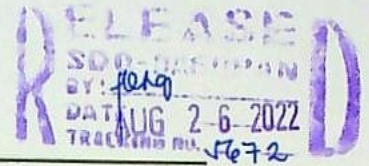 RELEASED
SDO-
BY:
DATE AUG 2 6 2022
TRACKING NO. 5672